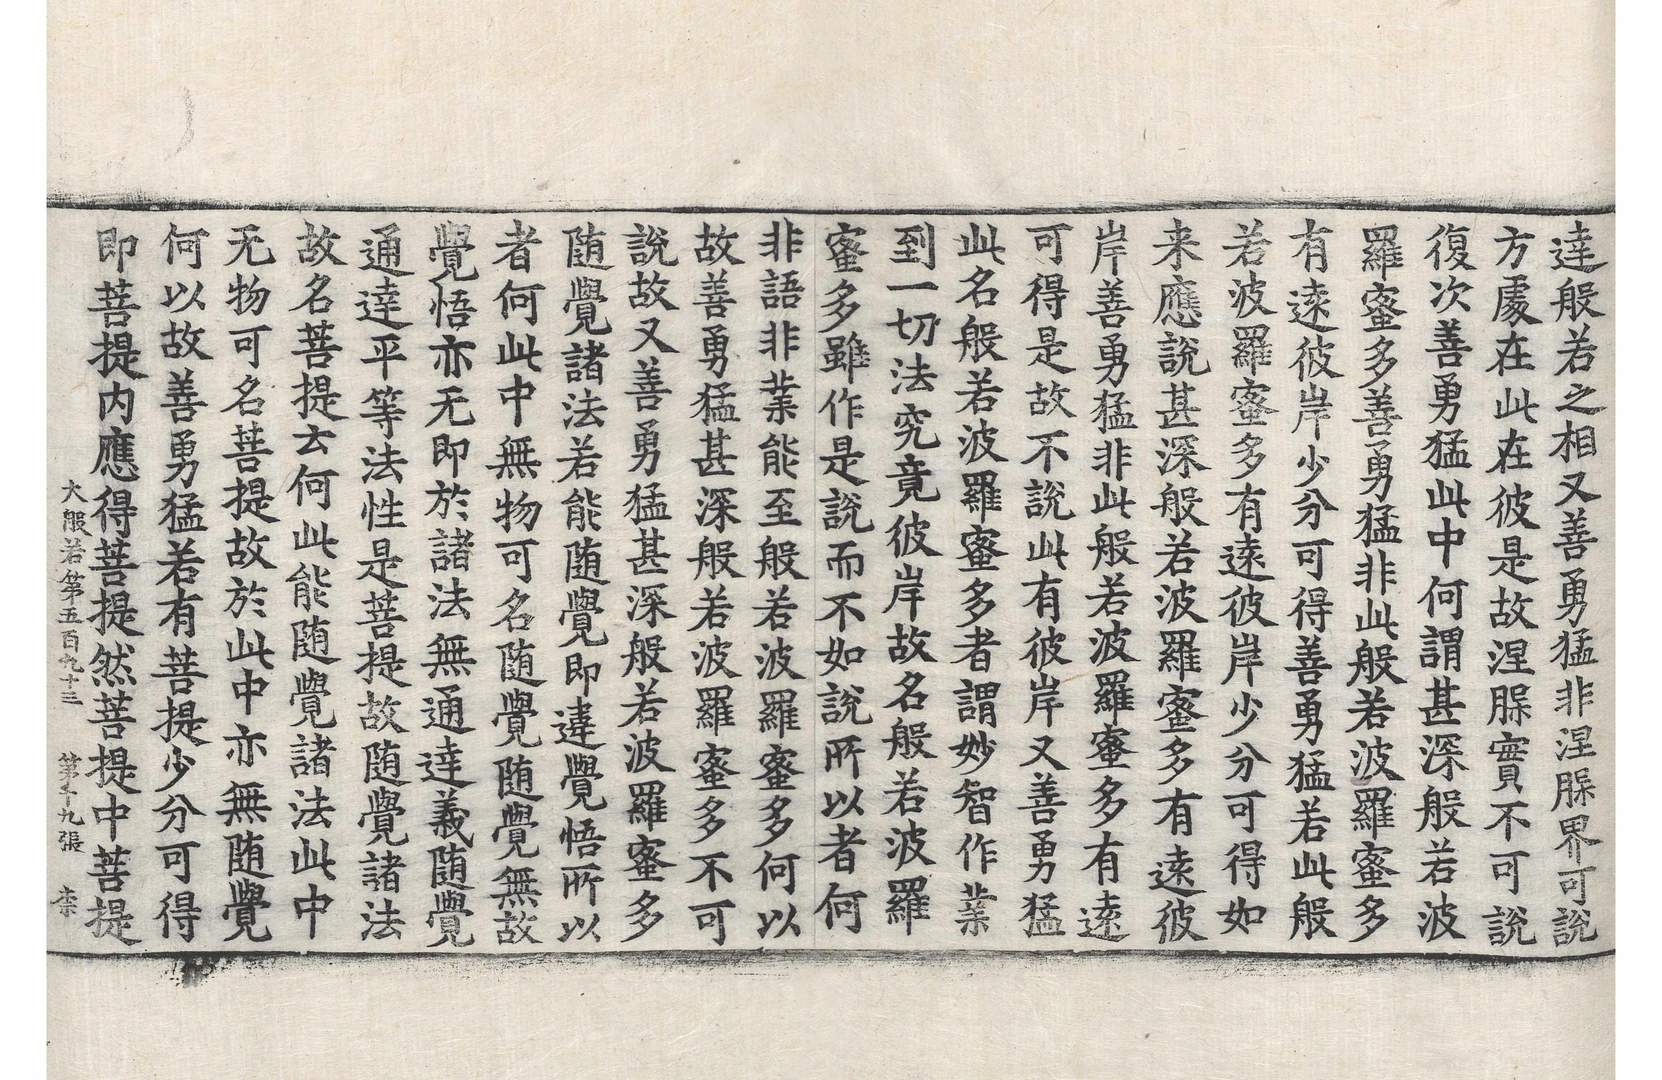 達般若之相又善勇猛非涅槃界可說
方處在此在彼是故涅槃實不可說
復次善勇猛此中何謂甚深般若波
羅蜜多善勇猛非此般若波羅蜜多
有遠彼岸少分可得善勇猛若此般
若波羅蜜多有遠彼岸少分可得如
来應說甚深般若波羅蜜多有遠彼
岸善勇猛非此般若波羅蜜多有遠
可得是故不說此有彼岸又善勇猛
此名般若波羅蜜多者謂妙智作業
到一切法究竟彼岸故名般若波羅
蜜多雖作是說而不如說所以者何
非語非業能至般若波羅蜜多何以
故善勇猛甚深般若波羅蜜多不可
說故又善勇猛甚深般若波羅蜜多
随覺諸法若能随覺即違覺悟所以
者何此中無物可名随覺随覺無故
覺悟亦无即於諸法無通達義随覺
通達平等法性是菩提故随覺諸法
故名菩提云何此能随覺諸法此中
无物可名菩提故於此中亦無随覺
何以故善勇猛若有菩提少分可得
即菩提内應得菩提然菩提中菩提
大般若第五百九十三 第十九張 李